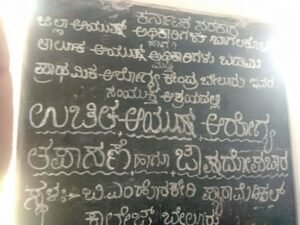 ಕರ್ನಾಟಕ ಸರಕಾರ
ಜಿಲ್ಲಾ ಆಯುಷ್ ಅಧಿಕಾರಿಗಳು ಬಾಗಲಕೋಟ
ಹಾಗೂ
ತಾಲೂಕ ಆಯುಷ್ ಅಧಿಕಾರಿಗಳು ಬದಾಮಿ
ಪ್ರಾಥಮಿಕ ಆರೋಗ್ಯ ಕೇಂದ್ರ ಬೇಲೂರು ಇವರ
ಸಂಯುಕ್ತ ಆಶ್ರಯದಲ್ಲಿ
ಉಚಿತ ಆಯುಷ್ ಆರೋಗ್ಯ
ತಪಾಸಣೆ ಹಾಗೂ ಔಷಧೋಪಚಾರ
ಸ್ಥಳ:- ಬಿ.ಎಂ.ಹೊರಕೇರಿ ಪ್ಯಾರಾಮೆಡಿಕಲ್
ಕಾಲೇಜ್ ಬೇಲೂರು